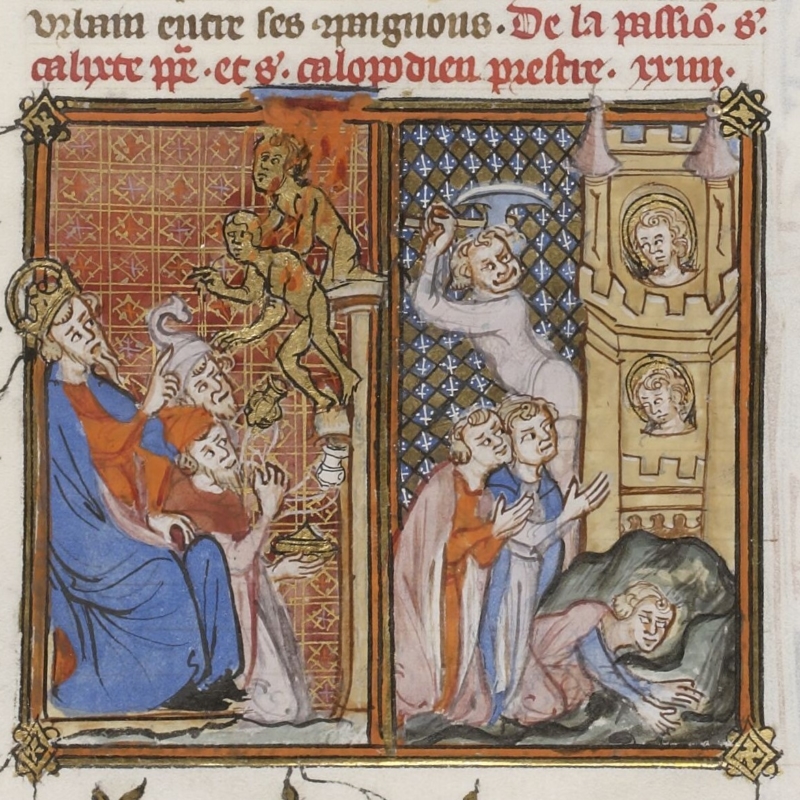 vrbain entre ses cpaignons. De la passiō. s'.
calixte ppe. et s'. calopodien prestre. xxiiij.